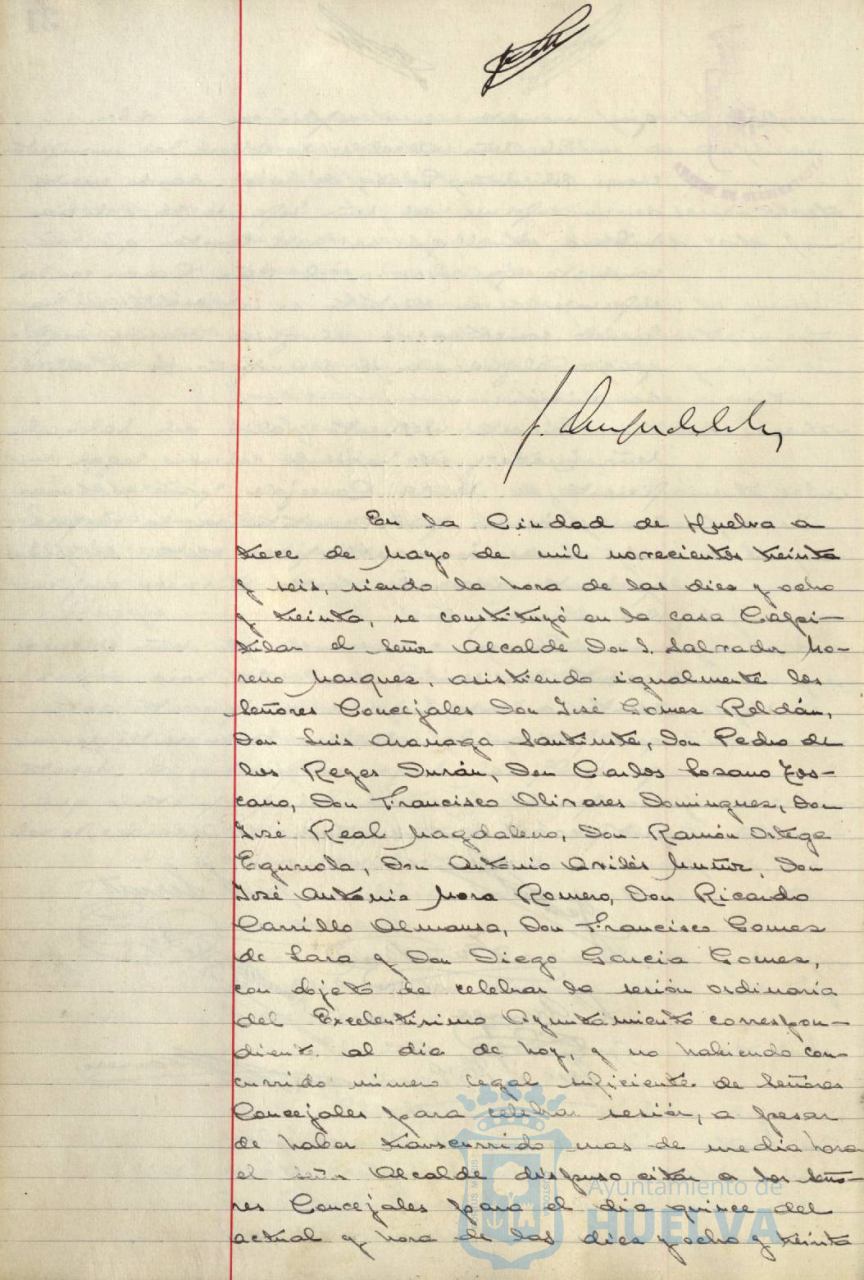 En la Ciudad de Huelva a
trece de Mayo de mil novecientos treinta
y seis, siendo la hora de las dies y ocho
y treinta, se constituyó en la casa Capi-
tular el Señor Alcalde Don S. Salvador Mo-
reno Marquez, asistiendo igualmente los
Señores Concejales Don José Gomez Roldán,
Don Luis Aranaga Santiuste, Don Pedro de
los Reyes Durán, Don Carlos Lozano Tos-
cano, Don Francisco Olivares Dominguez, Don
José Real Magdaleno, Don Ramón Ortega
Eguiriola, Don Antonio Avilés Muñoz, Don
José Antonio Mora Romero, Don Ricardo
Carrillo Almansa, Don Francisco Gomez
de Lara y Don Diego Garcia Gomez,
con objeto de celebrar la sesión ordinaria
del Excelentísimo Ayuntamiento correspon-
diente al dia de hoy, y no habiendo con-
currido número legal suficiente de Señores
Concejales para celebrar sesión, a pesar
de haber transcurrido mas de media hora
el señor Alcalde dispuso citar a los seño-
res Concejales para el dia quince del
actual y hora de las dies y ocho y treinta
Ayuntamiento de
HUELVA